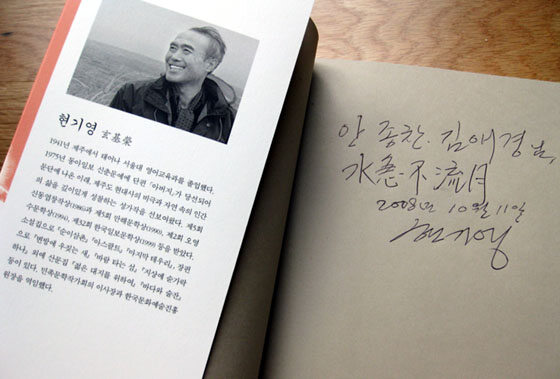 현기영 玄基榮
1941년 제주에서 태어나 서울대 영어교육과를 졸업했다.
1975년 동아일보 신춘문예에 단편 「아버지」가 당선되어
문단에 나온 이래, 제주도 현대사의 비극과 자연 속의 인간
의 삶을 깊이있게 성찰하는 선보여왔다. 제5회
신동엽창작상(1986)과 제5회 만해문학상(1990), 제2회 오영
수문학상(1994), 제32회 한국일보문학상(1999) 등을 받았다.
소설집으로 『순이삼촌』 『아스팔트』 『마지막 테우리』, 장편
으로 『변방에 우짖는 새』 『바람 타는 섬』 『지상에 숟가락
하나』, 외에 산문집 『젊은 대지를 위하여』 『바다와 술잔』
등이 있다. 민족문학작가회의 이사장과 한국문화예술진흥
원장을 역임했다.
안종찬·김애경 님,
水急不流月
2008년 10월 11일
현기영